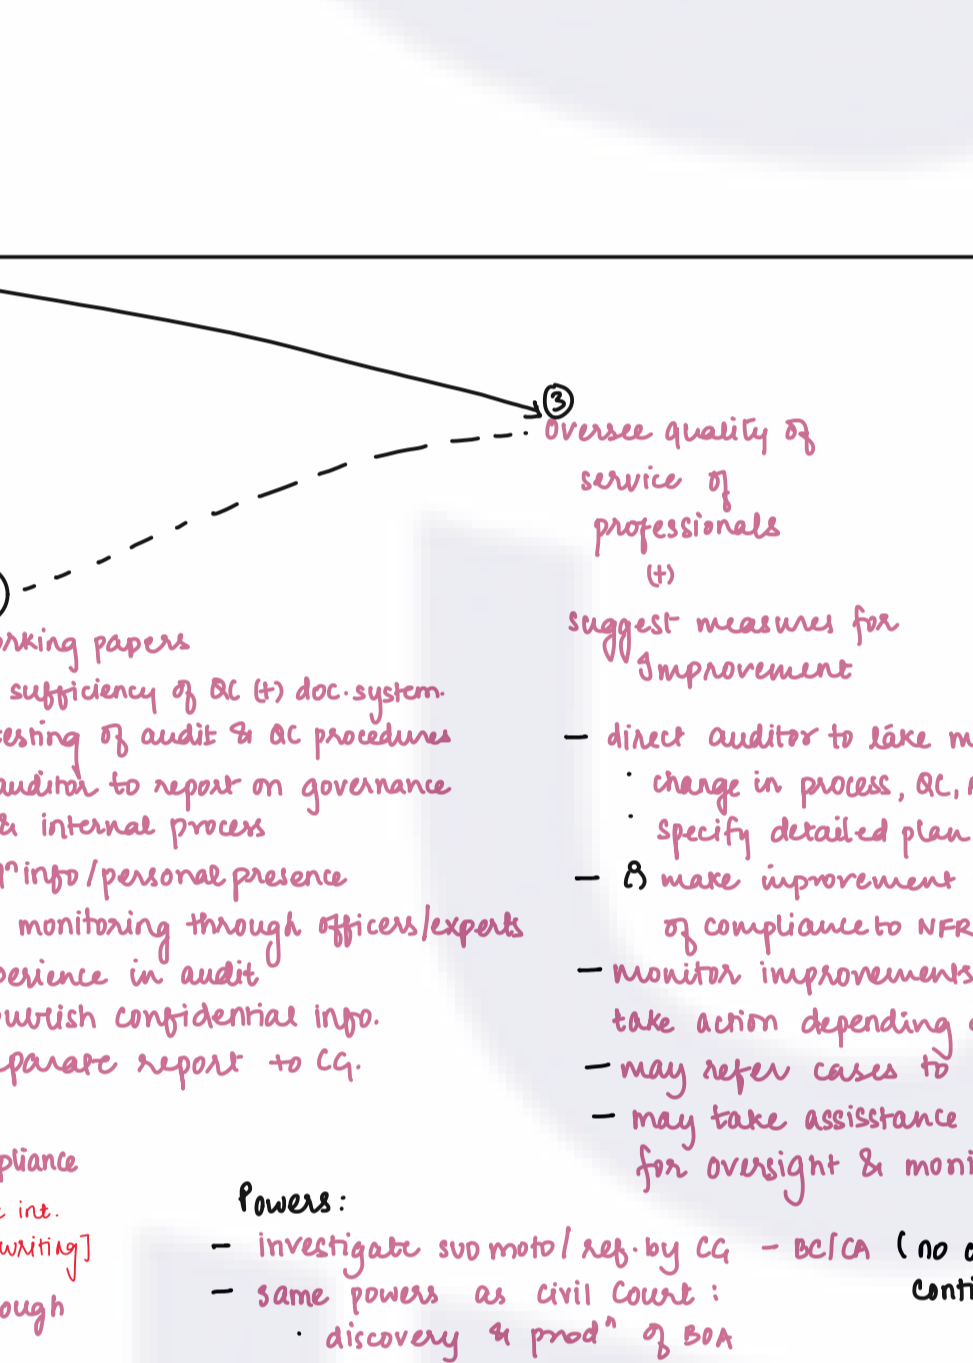 ③
oversee quality of
service of
professionals
(+)
suggest measures for
Improvement
- direct auditor to take
· change in process, QC,
· specify detailed plan
- make improvement
of compliance to NFR
- monitor improvements
take action depending
- may refer cases to
- may take assisstance
for oversight & moni
rking papers
sufficiency of QC (+) doc. system.
esting of audit & QC procedures
auditor to report on governance
& internal process
info/personal presence
monitoring through officers/experts
perience in audit
ublish confidential info.
parate report to CG.
pliance
int.
writing]
ough
Powers:
- investigate suo moto/ ref. by CG - BC/CA (no
conti
- same powers as civil Court :
· discovery & prodⁿ of BOA